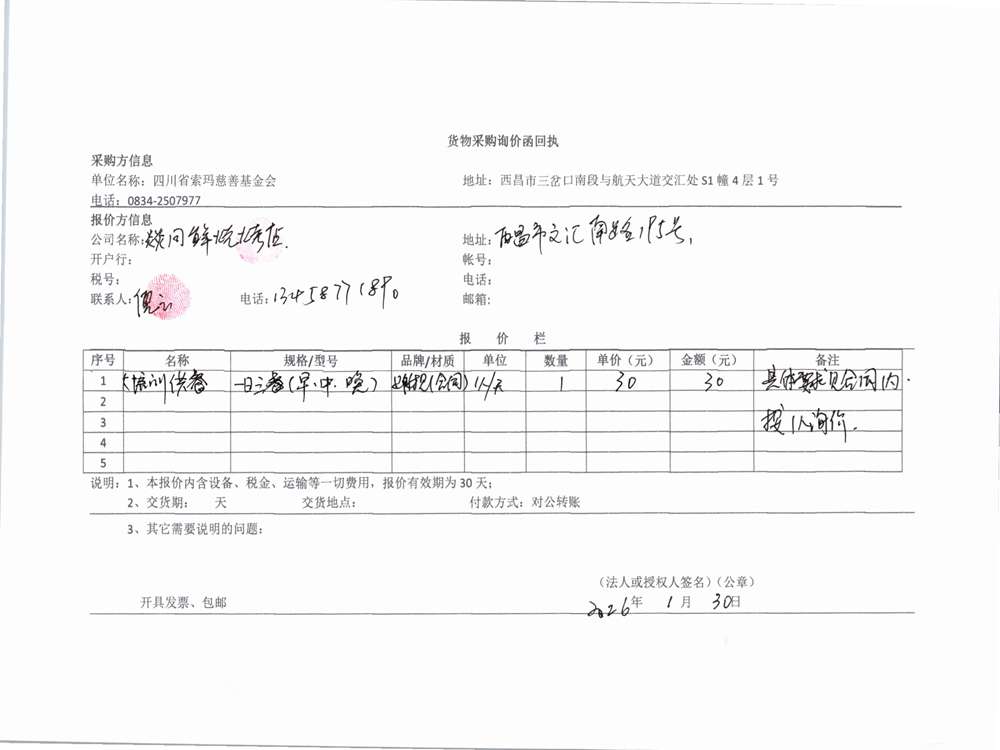 货物采购询价函回执
采购方信息
单位名称：四川省索玛慈善基金会 地址：西昌市三岔口南段与航天大道交汇处 S1 幢 4 层 1 号
电话：0834-2507977
报价方信息
公司名称： 鲜烧烤店. 地址：西昌市文汇南路195号,
开户行： 帐号：
税号： 电话：
联系人：倪 电话：13458771890 邮箱：
报 价 栏
序号 名称 规格/型号 品牌/材质 单位 数量 单价（元） 金额（元） 备注
1 培训供餐 一日三餐(早.中.晚) (合同) 人/天 1 30 30 具体要求见合同内.
2
3 按人询价.
4
5
说明：1、本报价内含设备、税金、运输等一切费用，报价有效期为 30 天；
2、交货期： 天 交货地点： 付款方式：对公转账
3、其它需要说明的问题：
（法人或授权人签名）（公章）
开具发票、包邮 2026年 1 月 30日